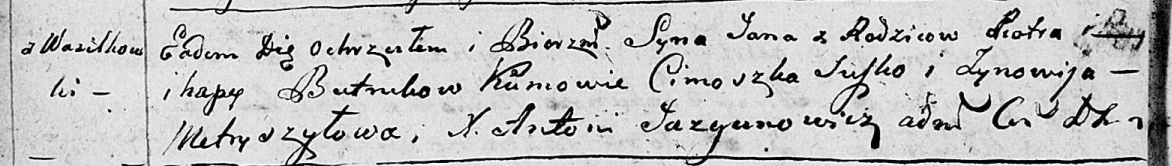 z Wasilkow Eadem Die ochrzciłem i Bierzm. Syna Jana z Rodzicow Piotra i
ki — i hapy Butrukow Kumowie Cimoszka Suszko i Zynowija —
Metryszyłowa, X. Antoni Jazgunowicz adm